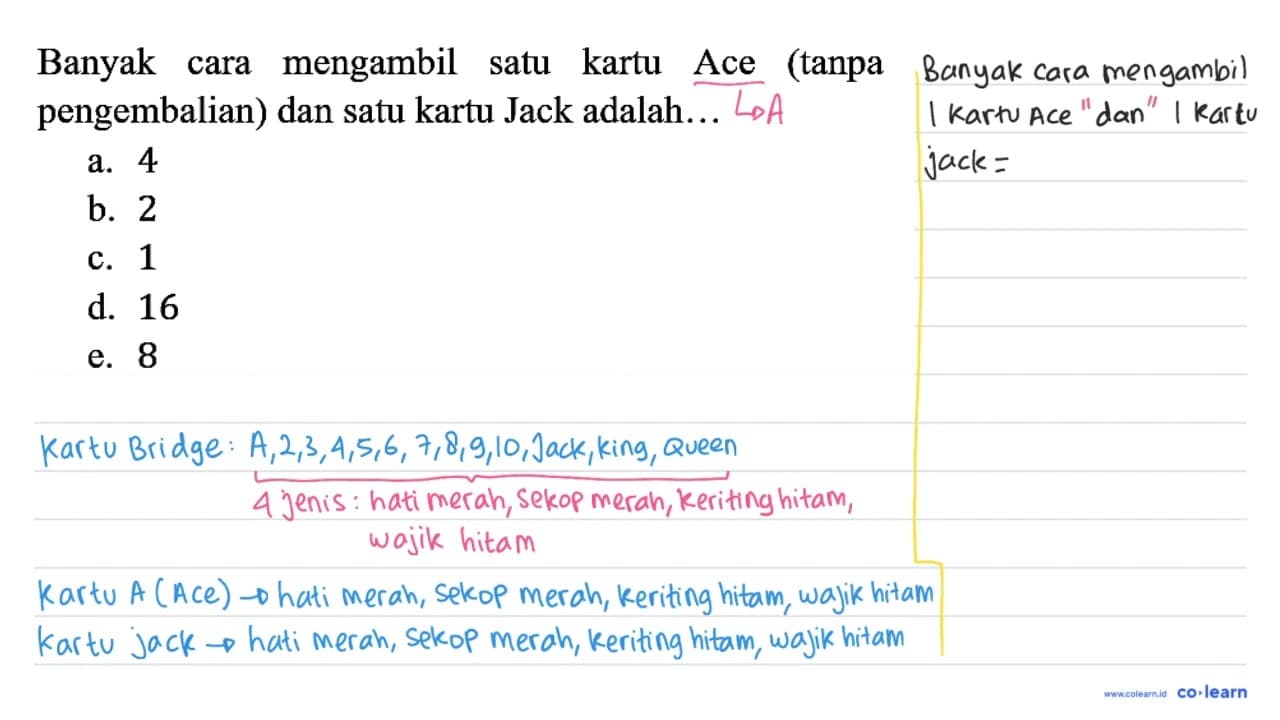 Banyak cara mengambil satu kartu Ace (tanpa
pengembalian) dan satu kartu Jack adalah... ↳A
a. 4
b. 2
c. 1
d. 16
e. 8
Banyak cara mengambil
1 Kartu Ace "dan" 1 Kartu
jack =
Kartu Bridge: A,2,3,4,5,6,7,8,9,10,Jack,king,Queen
4 jenis: hati merah, Sekop merah, keriting hitam,
wajik hitam
Kartu A (Ace) → hati merah, Sekop merah, keriting hitam, wajik hitam
Kartu jack → hati merah, Sekop merah, keriting hitam, wajik hitam
www.colearn.id co·learn